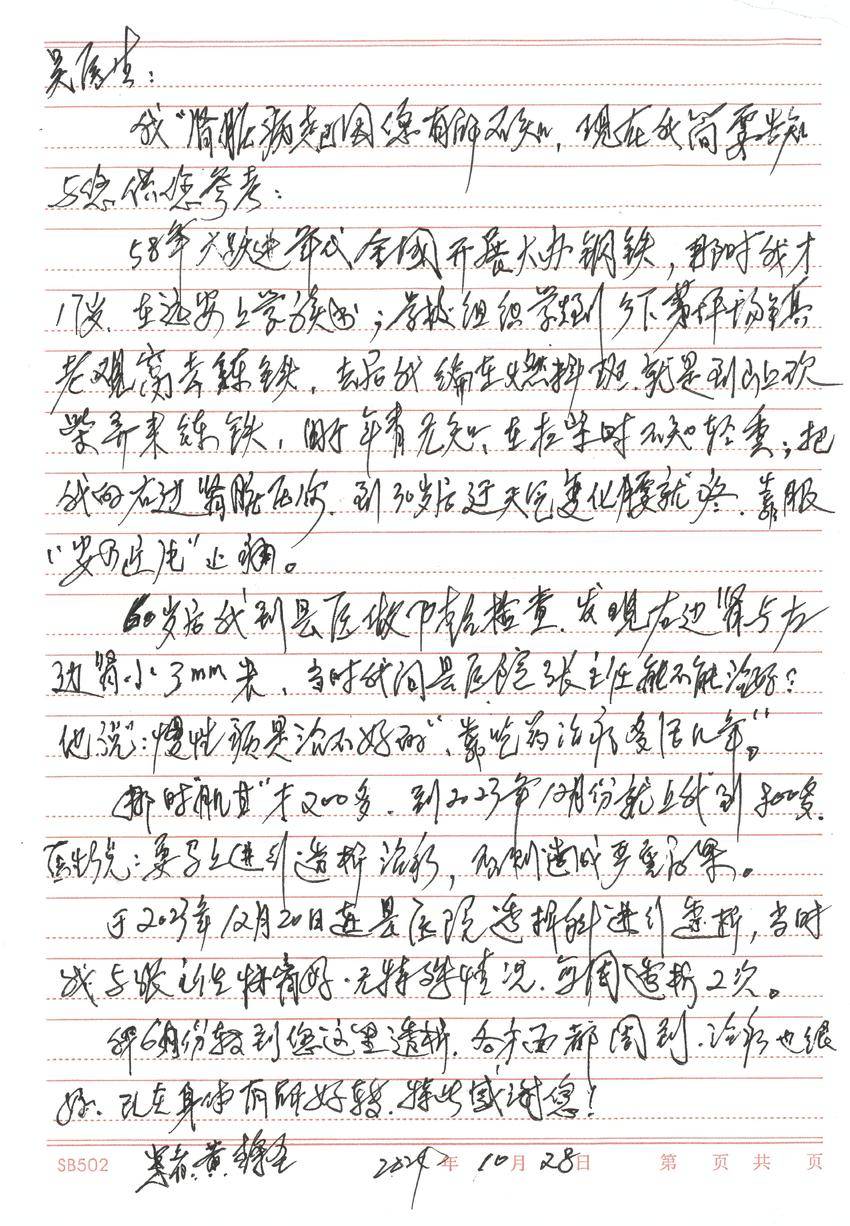 吴医生:
我"肾脏病"起因您有所不知,现在我简要告知
与您供您参考:
58年大跃进年代全国开展大办钢铁,那时我才
17岁.在远安上学读书;学校组织学生到乡下茅坪场镇
老观窝去炼铁,去后我编在燃料班.就是到山上砍
柴弄来炼铁,由于年青无知,在拉柴时不知轻重;把
我的右边肾脏压伤.到30岁后逆天气变化腰就疼.靠服
"安乃近片"止痛。
60岁后我到县医做B超检查.发现右边"肾与左
边"肾小3mm米,当时我问县医院张主任能不能治好?
他说:慢性病是治不好的",靠吃药治疗多活几年"。
那时"肌酐"才200多.到2023年12月份就上升到800多.
医生说:要马上进行透析治疗,否则造成严重后果。
于2023年12月20日在县医院透析科进行透析,当时
我与张主任特商好.无特殊情况.每周透析2次。
24年6月份转到您这里透析.各方面都周到.治疗也很
好.现在身体有所好转.特此感谢您!
患者:黄
SB502 2024年10月28日 第 页 共 页